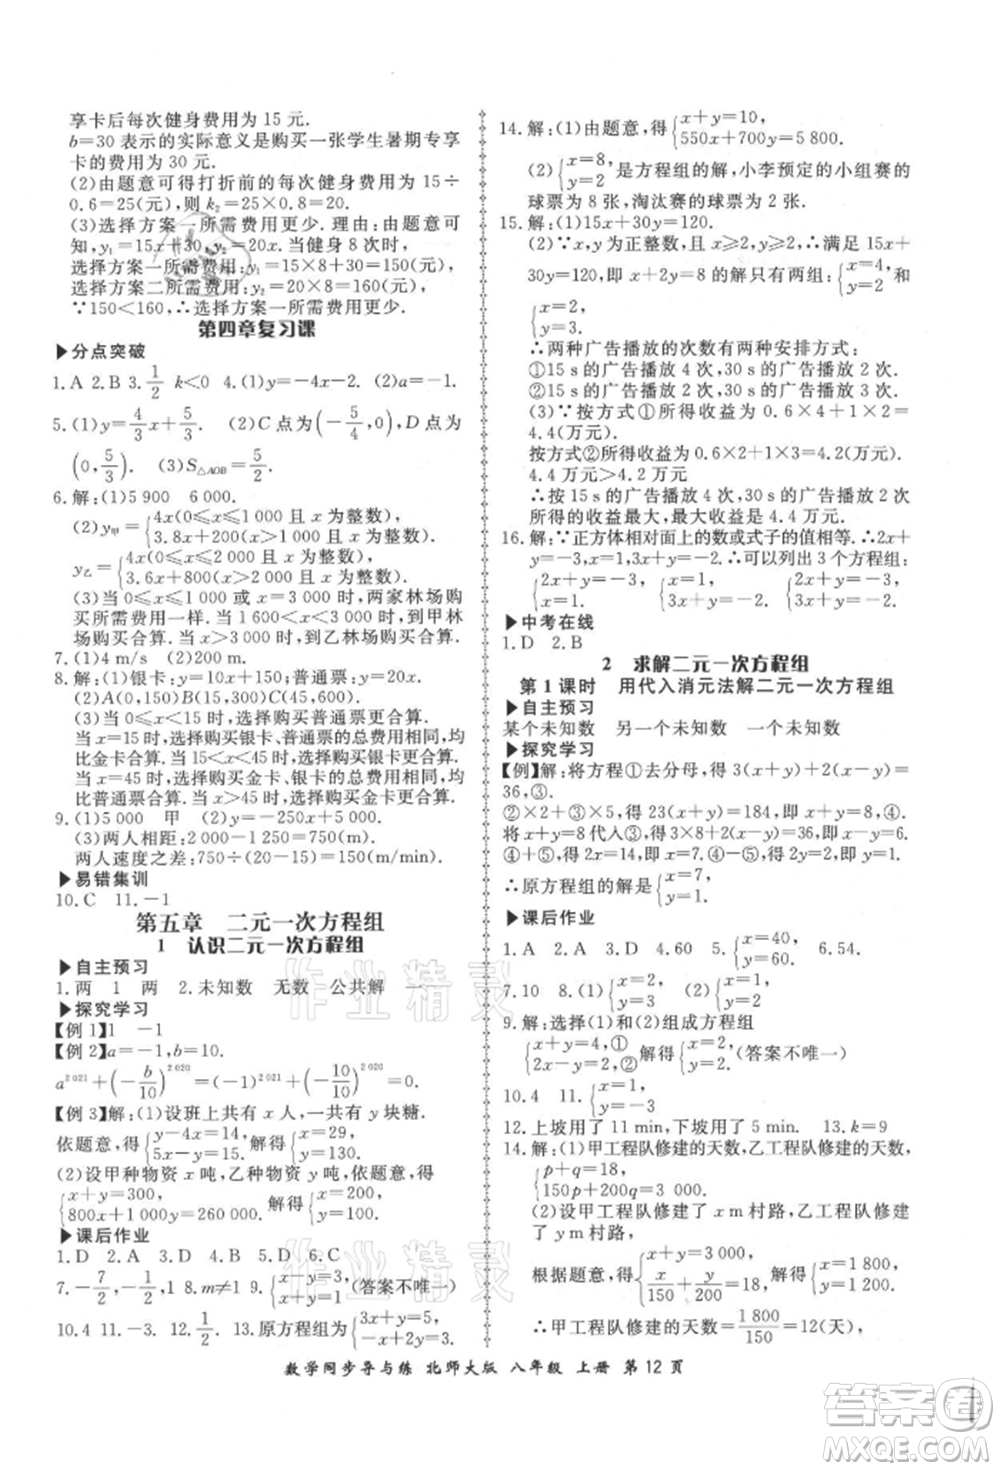 享卡后每次健身费用为 15 元.
b=30 表示的实际意义是购买一张学生暑期专享
卡的费用为 30 元.
(2)由题意可得打折前的每次健身费用为 15÷
0.6=25(元),则 k₂=25×0.8=20.
(3)选择方案一所需费用更少. 理由:由题意可
知,y₁=15x+30,y₂=20x. 当健身 8 次时,
选择方案一所需费用:y₁=15×8+30=150(元),
选择方案二所需费用:y₂=20×8=160(元),
∵150<160,∴选择方案一所需费用更少.
第四章复习课
▶分点突破
1.A 2.B 3.1/2 k<0 4.(1)y=-4x-2. (2)a=-1.
5.(1)y=4/3x+5/3. (2)C 点为(-5/4,0),D 点为
(0,5/3). (3)S△AOB=5/2.
6.解:(1)5 900 6 000.
(2)y甲={4x(0≤x≤1 000 且 x 为整数),
3.8x+200(x>1 000 且 x 为整数).
y乙={4x(0≤x≤2 000 且 x 为整数),
3.6x+800(x>2 000 且 x 为整数).
(3)当 0≤x≤1 000 或 x=3 000 时,两家林场购
买所需费用一样. 当 1 600<x<3 000 时,到甲林
场购买合算. 当 x>3 000 时,到乙林场购买合算.
7.(1)4 m/s (2)200 m.
8.解:(1)银卡:y=10x+150;普通票:y=20x.
(2)A(0,150)B(15,300)C(45,600).
(3)当 0<x<15 时,选择购买普通票更合算.
当 x=15 时,选择购买银卡、普通票的总费用相同,均
比金卡合算. 当 15<x<45 时,选择购买银卡更合算.
当 x=45 时,选择购买金卡、银卡的总费用相同,均比普
通票合算. 当 x>45 时,选择购买金卡更合算.
9.(1)5 000 甲 (2)y=-250x+5 000.
(3)两人相距:2 000-1 250=750(m).
两人速度之差:750÷(20-15)=150(m/min).
▶易错集训
10.C 11.-1
第五章 二元一次方程组
1 认识二元一次方程组
▶自主预习
1.两 1 两 2.未知数 无数 公共解 一
▶探究学习
【例 1】1 -1
【例 2】a=-1,b=10.
a²⁰²¹+(-b/10)²⁰²⁰=(-1)²⁰²¹+(-10/10)²⁰²⁰=0.
【例 3】解:(1)设班上共有 x 人,一共有 y 块糖.
依题意,得{y-4x=14, 5x-y=15. 解得{x=29, y=130.
(2)设甲种物资 x 吨,乙种物资 y 吨,依题意,得
{x+y=300, 800x+1 000y=260 000. 解得{x=200, y=100.
▶课后作业
1.D 2.A 3.D 4.B 5.D 6.C
7.-7/2 -2/7 8.m≠1 9.{x-y=-1, x+y=3. (答案不唯一)
10.4 11.-3. 12.1/2. 13.原方程组为{3x+y=5, x-2y=4.
14.解:(1)由题意,得{x+y=10, 550x+700y=5 800.
(2){x=8, y=2 是方程组的解,小李预定的小组赛的
球票为 8 张,淘汰赛的球票为 2 张.
15.解:(1)15x+30y=120.
(2)∵x,y 为正整数,x≥2,y≥2,∴满足 15x+
30y=120,即 x+2y=8 的解只有两组:{x=4, y=2 和
{x=2, y=3.
∴两种广告播放的次数有两种安排方式:
①15 s 的广告播放 4次,30 s 的广告播放 2 次.
②15 s 的广告播放 2次,30 s 的广告播放 3 次.
(3)∵按方式①所得收益为 0.6×4+1×2=
4.4(万元).
按方式②所得收益为 0.6×2+1×3=4.2(万元).
4.4 万元>4.2 万元
∴按 15 s 的广告播放 4 次,30 s 的广告播放 2 次
所得的收益最大,最大收益是 4.4 万元.
16.解:∵正方体相对面上的数或式子的值相等.∴2x+
y=-3,x-y=1,x=1.∴可以列出 3 个方程组:
{2x+y=-3, x=1. {2x+y=-3, x-y=1. {x-y=1, x=1.
▶中考在线
1.D 2.B
2 求解二元一次方程组
第 1 课时 用代入消元法解二元一次方程组
▶自主预习
某个未知数 另一个未知数 一个未知数
▶探究学习
【例】解:将方程①去分母,得 3(x+y)+2(x-y)=
36,③.
②×2+③×5,得 23(x+y)=184,即 x+y=8,④.
将 x+y=8 代入③,得 2(x-y)=12,即 x-y=6,⑤.
④+⑤,得 2x=14,即 x=7. ④-⑤,得 2y=2,即 y=1.
∴原方程组的解是{x=7, y=1.
▶课后作业
1.A 2.A 3.D 4.60 5.{x=40, y=60. 6.54.
7.10 8.(1){x=5, y=2. (2){x=1, y=3.
9.解:选择(1)和(2)组成方程组
{x+y=4,① 2x-y=2,② 解得{x=2, y=2. (答案不唯一)
10.4 11.{x=3, y=1. 12.上坡用了 11 min,下坡用了 5 min. 13.k=9
14.解:(1)甲工程队修建的天数,乙工程队修建的天数,
{p+q=18, 150p+200q=3 000.
(2)设甲工程队修建了 x m 村路,乙工程队修建了
y m 村路,
根据题意,得{x+y=3 000, x/150+y/200=18, 解得{x=1 800, y=1 200.
∴甲工程队修建的天数=1 800/150=12(天),
数学同步导与练 北师大版 八年级 上册 第 12 页
作业精灵
作业精灵
答案圈
MXQE.COM